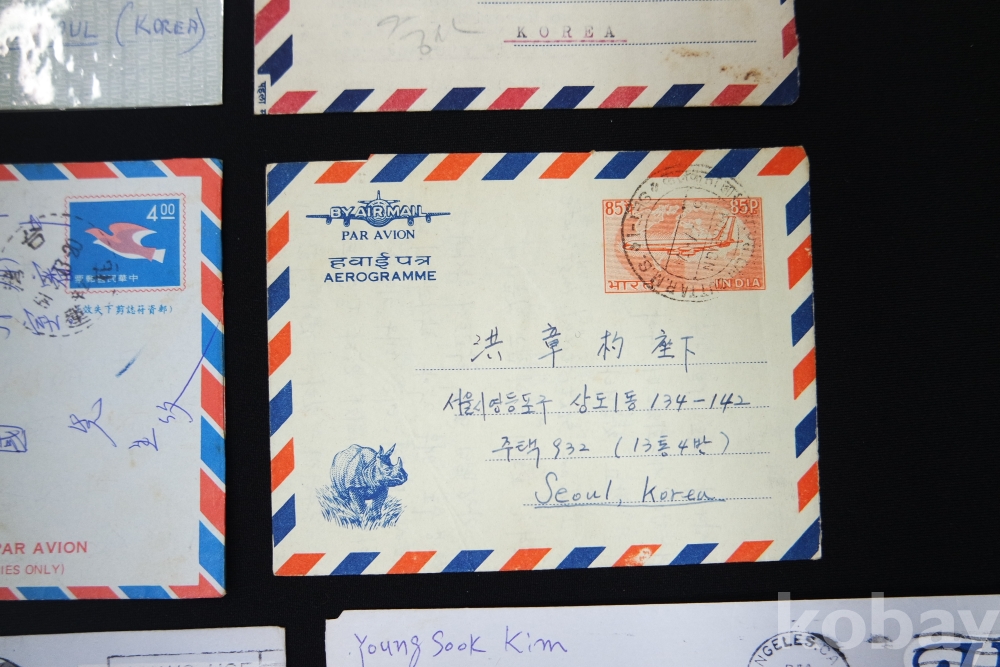 SEOUL (KOREA)
KOREA
BY AIR MAIL
PAR AVION
हवाई पत्र
AEROGRAMME
85P 85P
भारत INDIA
洪 章 杓 座下
서울시영등포구 상도1동 134-142
주택 932 (13통4반)
Seoul, Korea
4.00
中華民國郵票
(郵資符誌剪下失效)
國
PAR AVION
IES ONLY)
Young Sook Kim
NGELES, CA
kobay